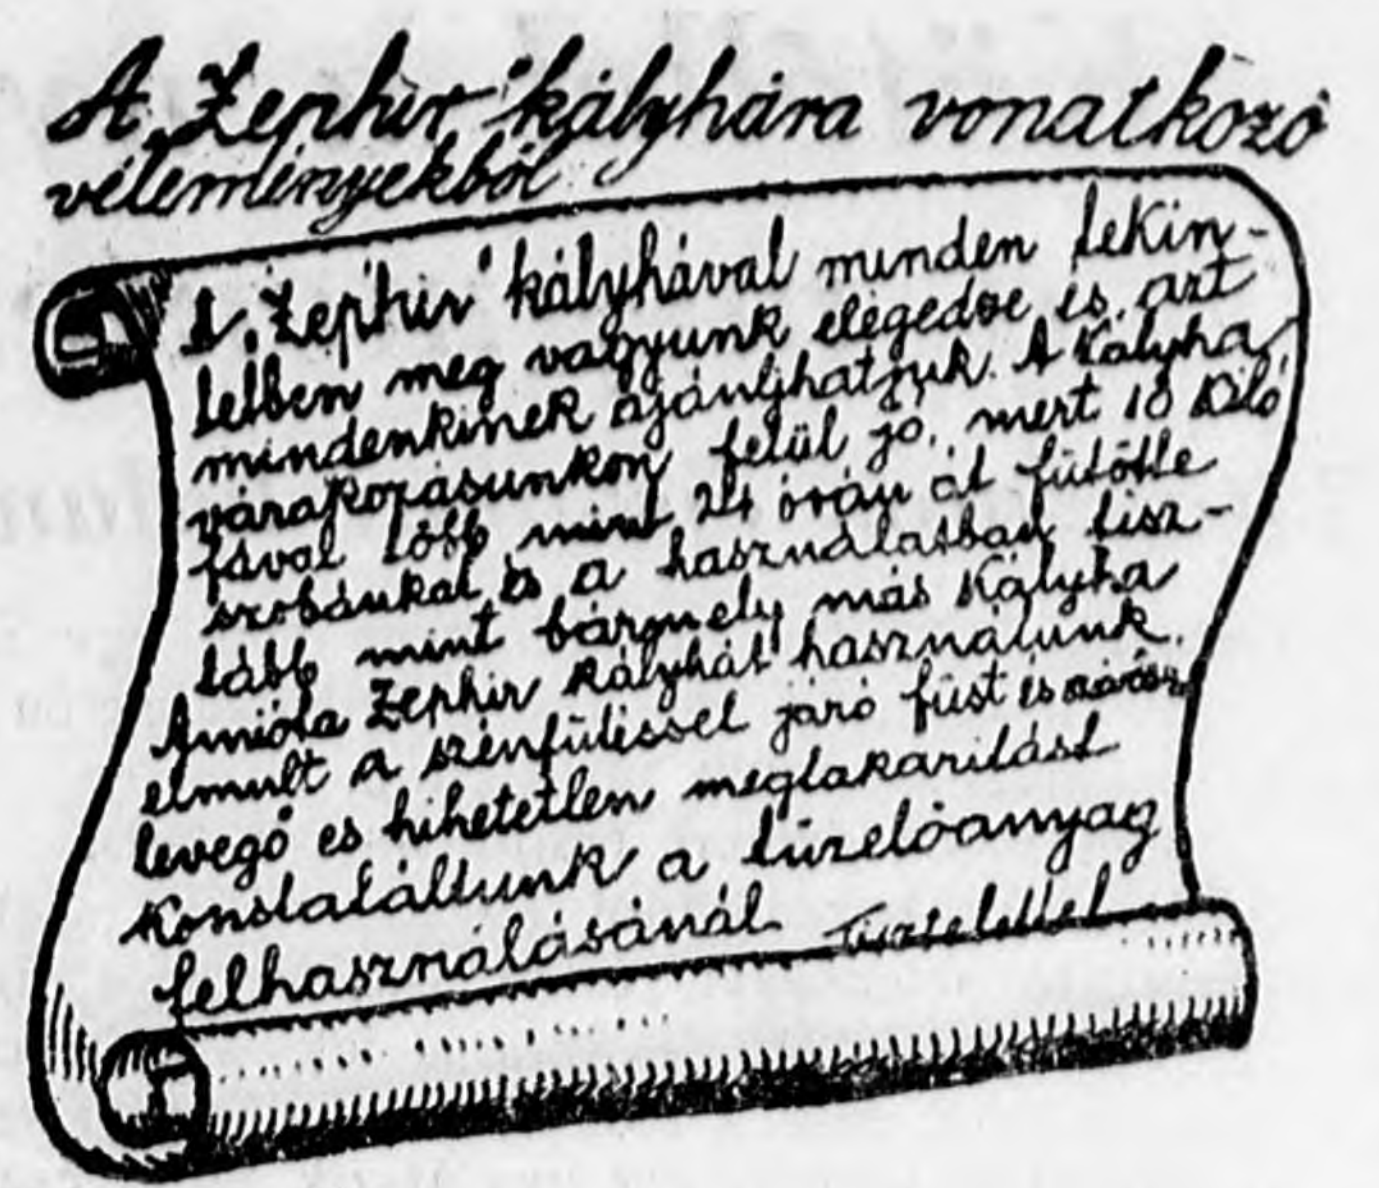 A „Zephir" kályhára vonatkozó
véleményekből
A „Zephir" kályhával minden tekin-
tetben meg vagyunk elégedve és azt
mindenkinek ajánlhatjuk. A kályha
várakozásunkon felül jó, mert 10 kiló
fával több mint 24 órán át fütötte
szobánkat és a használatban tisz-
tább mint bármely más kályha
Amióta Zephir kályhát használunk,
elmult a szénfütéssel járó füst és
levegő és hihetetlen megtakaritást
konstatáltunk a tüzelőanyag
felhasználásánál Tisztelettel